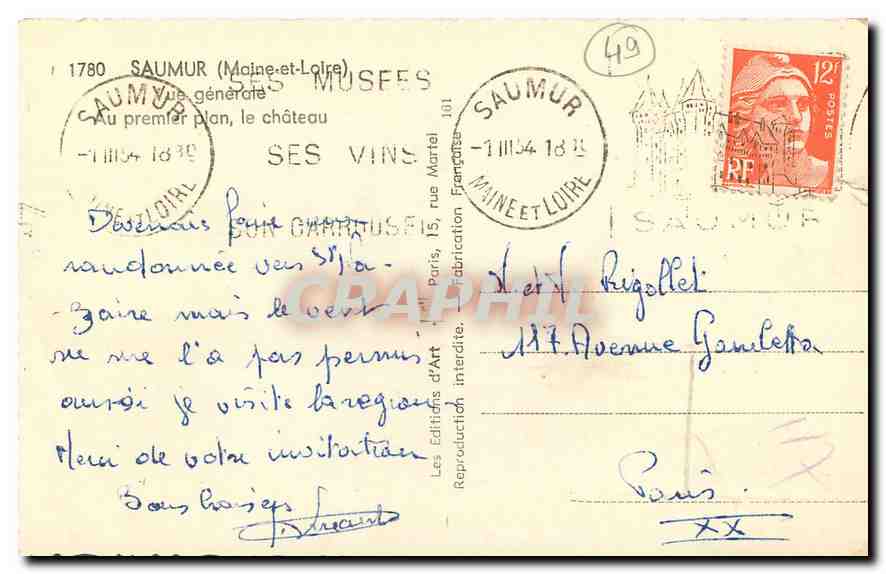 1780 SAUMUR (Maine-et-Loire)
Vue générale
Au premier plan, le château
SAUMUR
-1 III 54 18
MAINE ET LOIRE
SES MUSEES
SES VINS
SON CARROUSEL
SAUMUR
-1 III 54 18
MAINE ET LOIRE
SAUMUR
49
12F
POSTES
RF
Devenais faire
randonnée vers St Na-
-zaire mais le vent
ne me l'a pas permis
aussi je visite la region
Merci de votre invitation
Bons baisers
Les Editions d'Art - Paris, 15, rue Martel 101
Reproduction interdite. - Fabrication Française
Rigollet
117. Avenue Gambetta
Paris.
XX
CRAPHIL